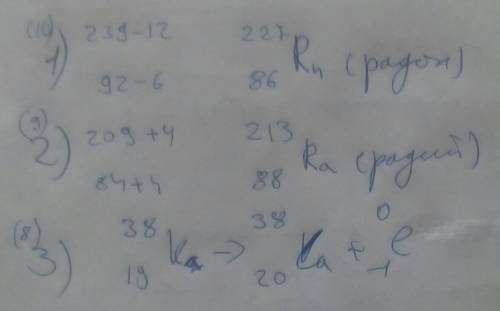 (10) 239-12 227
1) Rn (радон)
92-6 86
(9) 209+4 213
2) Ra (радий)
84+4 88
(8) 38 38 0
3) Ka → Ca + e
19 20 -1